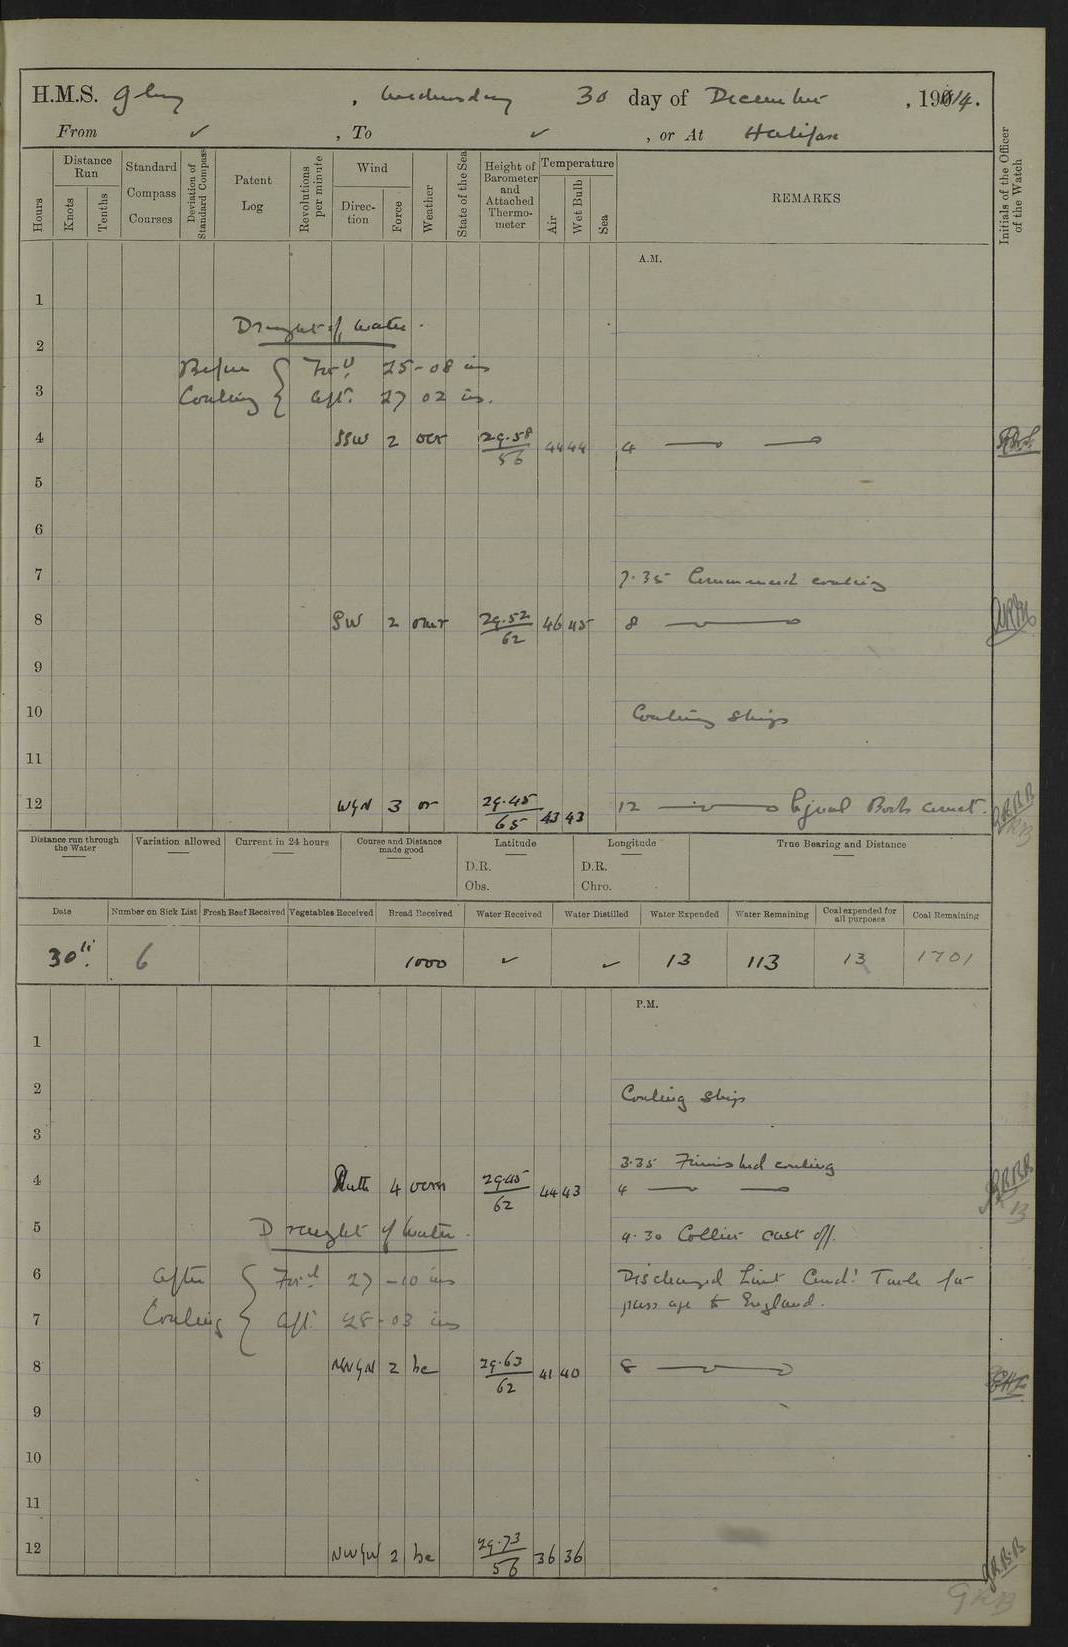 H.M.S. Glory, Wednesday 30 day of December, 1914.
From ✓, To ✓, or At Halifax
Hours
Distance Run
Knots
Tenths
Standard Compass Courses
Deviation of Standard Compass
Patent Log
Revolutions per minute
Wind
Direction
Force
Weather
State of the Sea
Height of Barometer and Attached Thermometer
Temperature
Air
Wet Bulb
Sea
REMARKS
Initials of the Officer of the Watch
A.M.
1
Draught of Water.
2
Before Coaling { For'd 25-08 ins
3
Aft. 27 02 ins.
4 SSW 2 ocr 29.58/56 44 44 4
5
6
7 7.35 Commenced coaling
8 SW 2 omr 29.52/62 46 45 8
9
10 Coaling Ship
11
12 WbN 3 or 29.45/65 43 43 12
Distance run through the Water
Variation allowed
Current in 24 hours
Course and Distance made good
Latitude
D.R.
Obs.
Longitude
D.R.
Chro.
True Bearing and Distance
Date Number on Sick List Fresh Beef Received Vegetables Received Bread Received Water Received Water Distilled Water Expended Water Remaining Coal expended for all purposes Coal Remaining
30th. 6 1000 ✓ ✓ 13 113 13 1701
P.M.
1
2 Coaling Ship
3
3.35 Finished coaling
4 South 4 29.45/62 44 43 4
5 Draught of Water. 4.30 Collier cast off.
6 After Coaling { For'd 27-10 ins Discharged Lieut Cmdr Tuele for
passage to England.
7 Aft. 28-03 ins
8 NWbN 2 bc 29.63/62 41 40 8
9
10
11
12 NWbW 2 bc 29.73/56 36 36
G.R.B.B
GRB